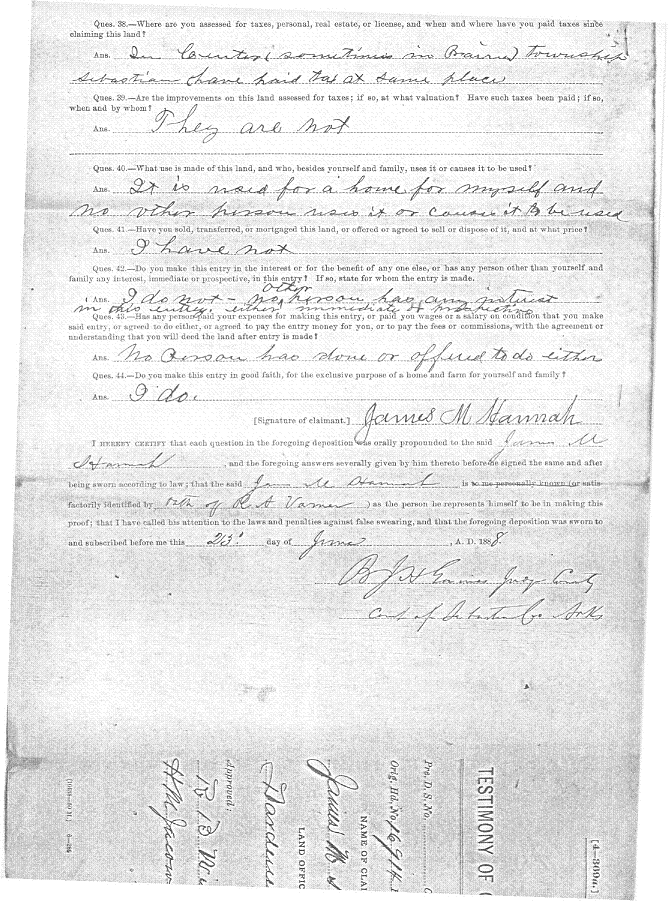 Ques. 38.—Where are you assessed for taxes, personal, real estate, or license, and when and where have you paid taxes since
claiming this land?
Ans. In Center (sometimes in Bates) township
Sebastian have paid tax at same place
Ques. 39.—Are the improvements on this land assessed for taxes; if so, at what valuation? Have such taxes been paid; if so,
when and by whom?
Ans. They are not
Ques. 40.—What use is made of this land, and who, besides yourself and family, uses it or causes it to be used?
Ans. It is used for a home for myself and
no other person uses it or causes it to be used
Ques. 41.—Have you sold, transferred, or mortgaged this land, or offered or agreed to sell or dispose of it, and at what price?
Ans. I have not
Ques. 42.—Do you make this entry in the interest or for the benefit of any one else, or has any person other than yourself and
family any interest, immediate or prospective, in this entry? If so, state for whom the entry is made.
Ans. I do not – no other person has any interest
in this entry either immediate or prospective
Ques. 43.—Has any person paid your expenses for making this entry, or paid you wages or a salary on condition that you make
said entry, or agreed to do either, or agreed to pay the entry money for you, or to pay the fees or commissions, with the agreement or
understanding that you will deed the land after entry is made?
Ans. No Person has done or offered to do either
Ques. 44.—Do you make this entry in good faith, for the exclusive purpose of a home and farm for yourself and family?
Ans. I do.
[Signature of claimant.] James M Hannah
I HEREBY CERTIFY that each question in the foregoing deposition was orally propounded to the said James M
Hannah, and the foregoing answers severally given by him thereto before he signed the same and after
being sworn according to law; that the said James M Hannah is to me personally known (or satis-
factorily identified by oath of R A Varner) as the person he represents himself to be in making this
proof; that I have called his attention to the laws and penalties against false swearing, and that the foregoing deposition was sworn to
and subscribed before me this 23d day of June, A. D. 1888.
Judge County
Court of Sebastian Co Arks
[4—369a.]
TESTIMONY OF
Pre. D. S. No.
Orig. Hd. No. 16914
NAME OF CLAI
James M
LAND OFFIC
Dardane
Approved:
R B
H M Jacow